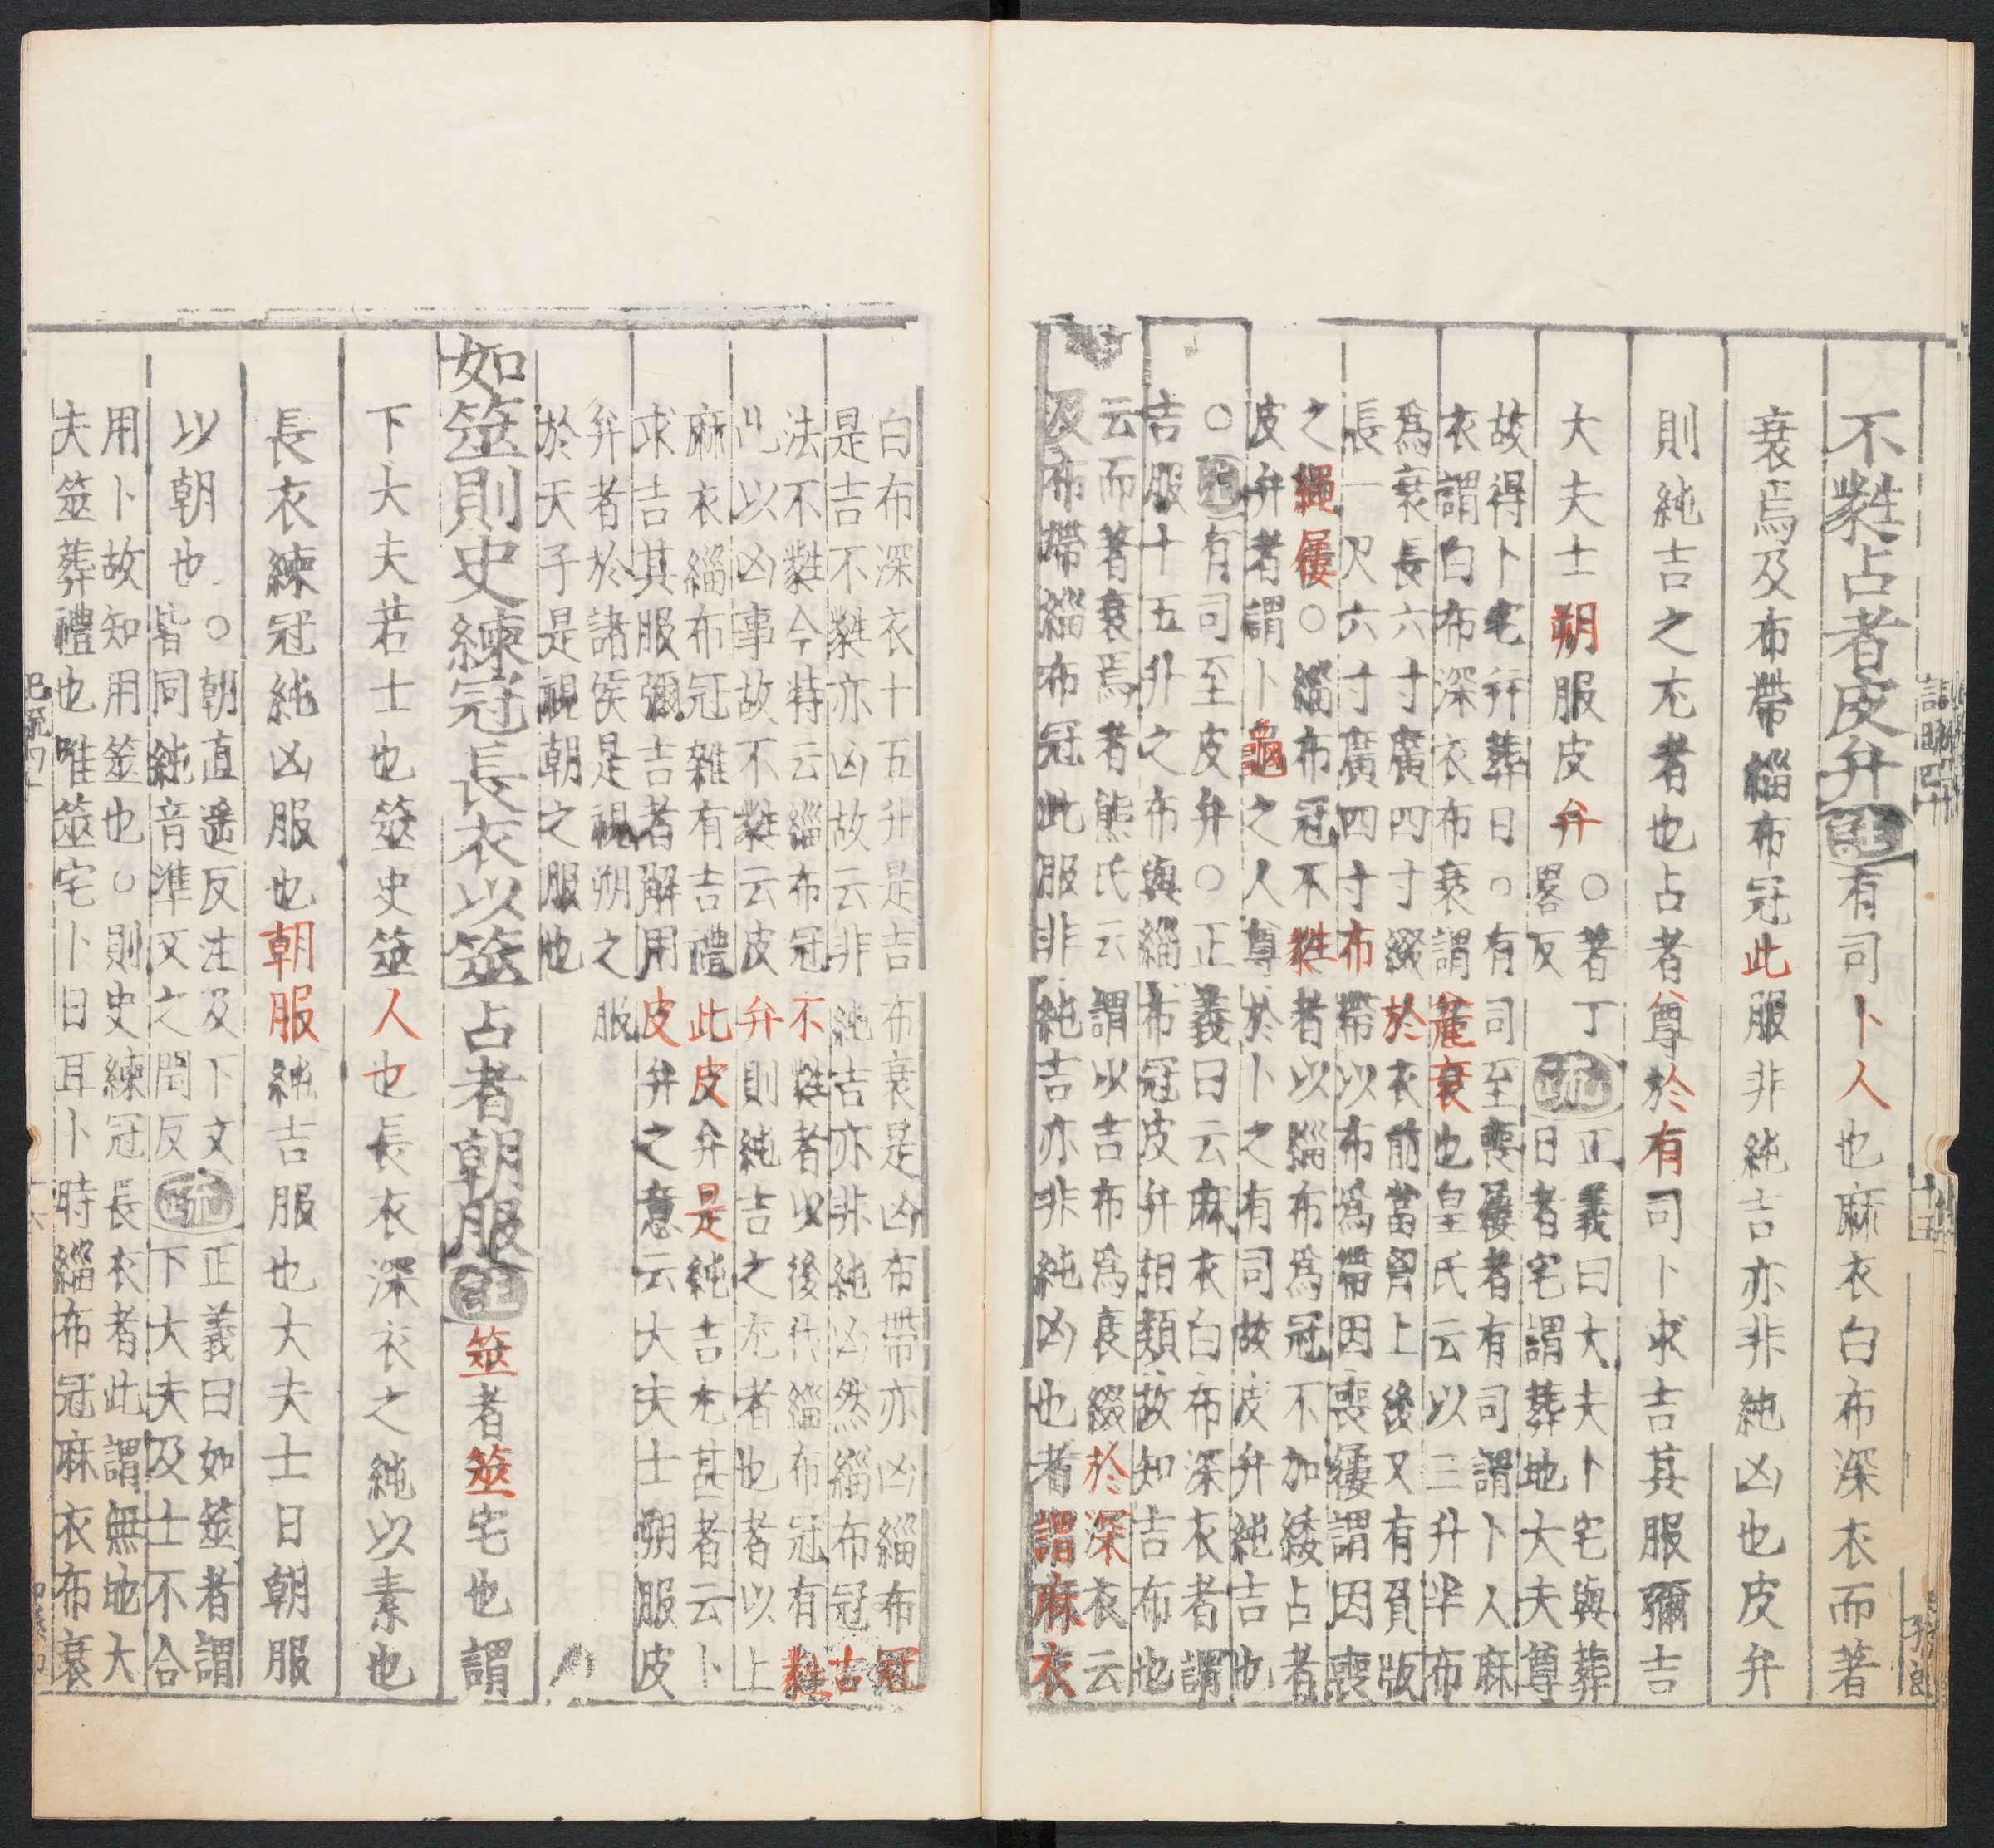 不蕤占者皮弁注有司卜人也麻衣白布深衣而著
衰焉及布帶緇布冠此服非純吉亦非純凶也皮弁
則純吉之尤者也占者尊於有司卜求吉其服彌吉
大夫士朔服皮弁○著丁
畧反
疏正義曰大夫卜宅與葬
日者宅謂葬地大夫尊
故得卜宅幷葬日○有司至喪屨者有司謂卜人麻
衣謂白布深衣布衰謂麄衰也皇氏云以三升半布
爲衰長六寸廣四寸綴於衣前當胷上後又有負版
長一尺六寸廣四寸布帶以布爲帶因喪屨謂因喪
之繩屨○緇布冠不蕤者以緇布爲冠不加緌占者
皮弁者謂卜龜之人尊於卜之有司故皮弁純吉也
○注有司至皮弁○正義曰云麻衣白布深衣者謂
吉服十五升之布與緇布冠皮弁相類故知吉布也
云而著衰焉者熊氏云謂以吉布爲衰綴於深衣云
及布帶緇布冠此服非純吉亦非純凶也者謂麻衣
白布深衣十五升是吉布衰是凶布帶亦凶緇布冠
是吉不蕤亦凶故云非純吉亦非純凶然緇布冠古
法不蕤今特云緇布冠不蕤者以後代緇布冠有蕤
此以凶事故不蕤云皮弁則純吉之尤者也者以上
麻衣緇布冠雜有吉禮此皮弁是純吉尤甚者云卜
求吉其服彌吉者解用皮弁之意云大夫士朔服皮
弁者於諸侯是視朔之服
於天子是視朝之服也
如筮則史練冠長衣以筮占者朝服注筮者筮宅也謂
下大夫若士也筮史筮人也長衣深衣之純以素也
長衣練冠純凶服也朝服純吉服也大夫士日朝服
以朝也○朝直遙反注及下文
皆同純音準又之閏反
疏正義曰如筮者謂
下大夫及士不合
用卜故知用筮也○則史練冠長衣者此謂無地大
夫筮葬禮也唯筮宅卜日耳卜時緇布冠麻衣布衰